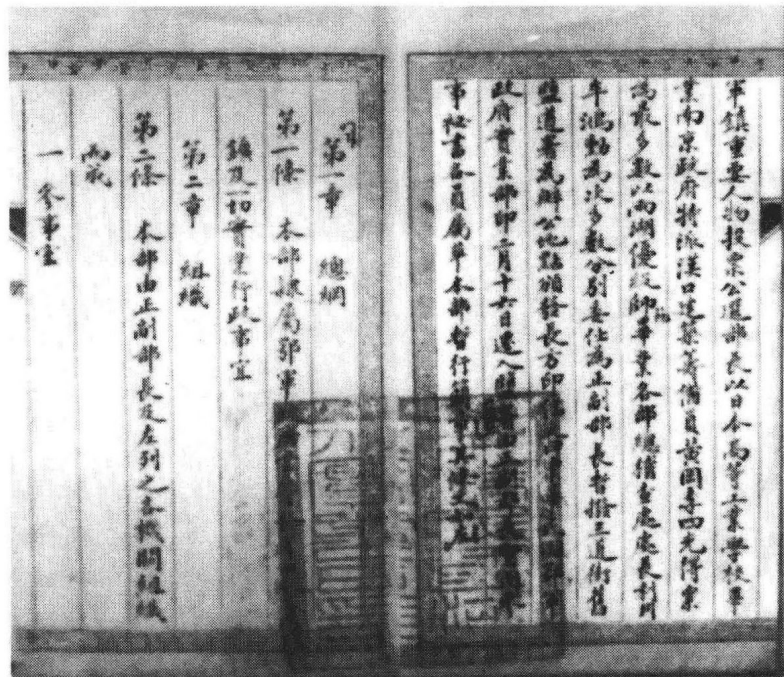 軍鎮重要人物投票公選部長以日本高等工業學校畢
業南京政府特派漢口建築籌備員黃國李四光得票
為最多數以兩湖優級師範畢業各部總稽查處處長
牟鴻勛為次多數分別委任為正副部長暫撥三道街舊
鹽道署為辦公地點頒給長方印
政府實業部印二月十六日遷入
事秘書各員屬草本部暫行
第一章 總綱
第一條 本部隸屬鄂軍
鎮及一切實業行政事宜
第二章 組織
第二條 本部由正副部長及左列之各機關組織
而成
一 參事室